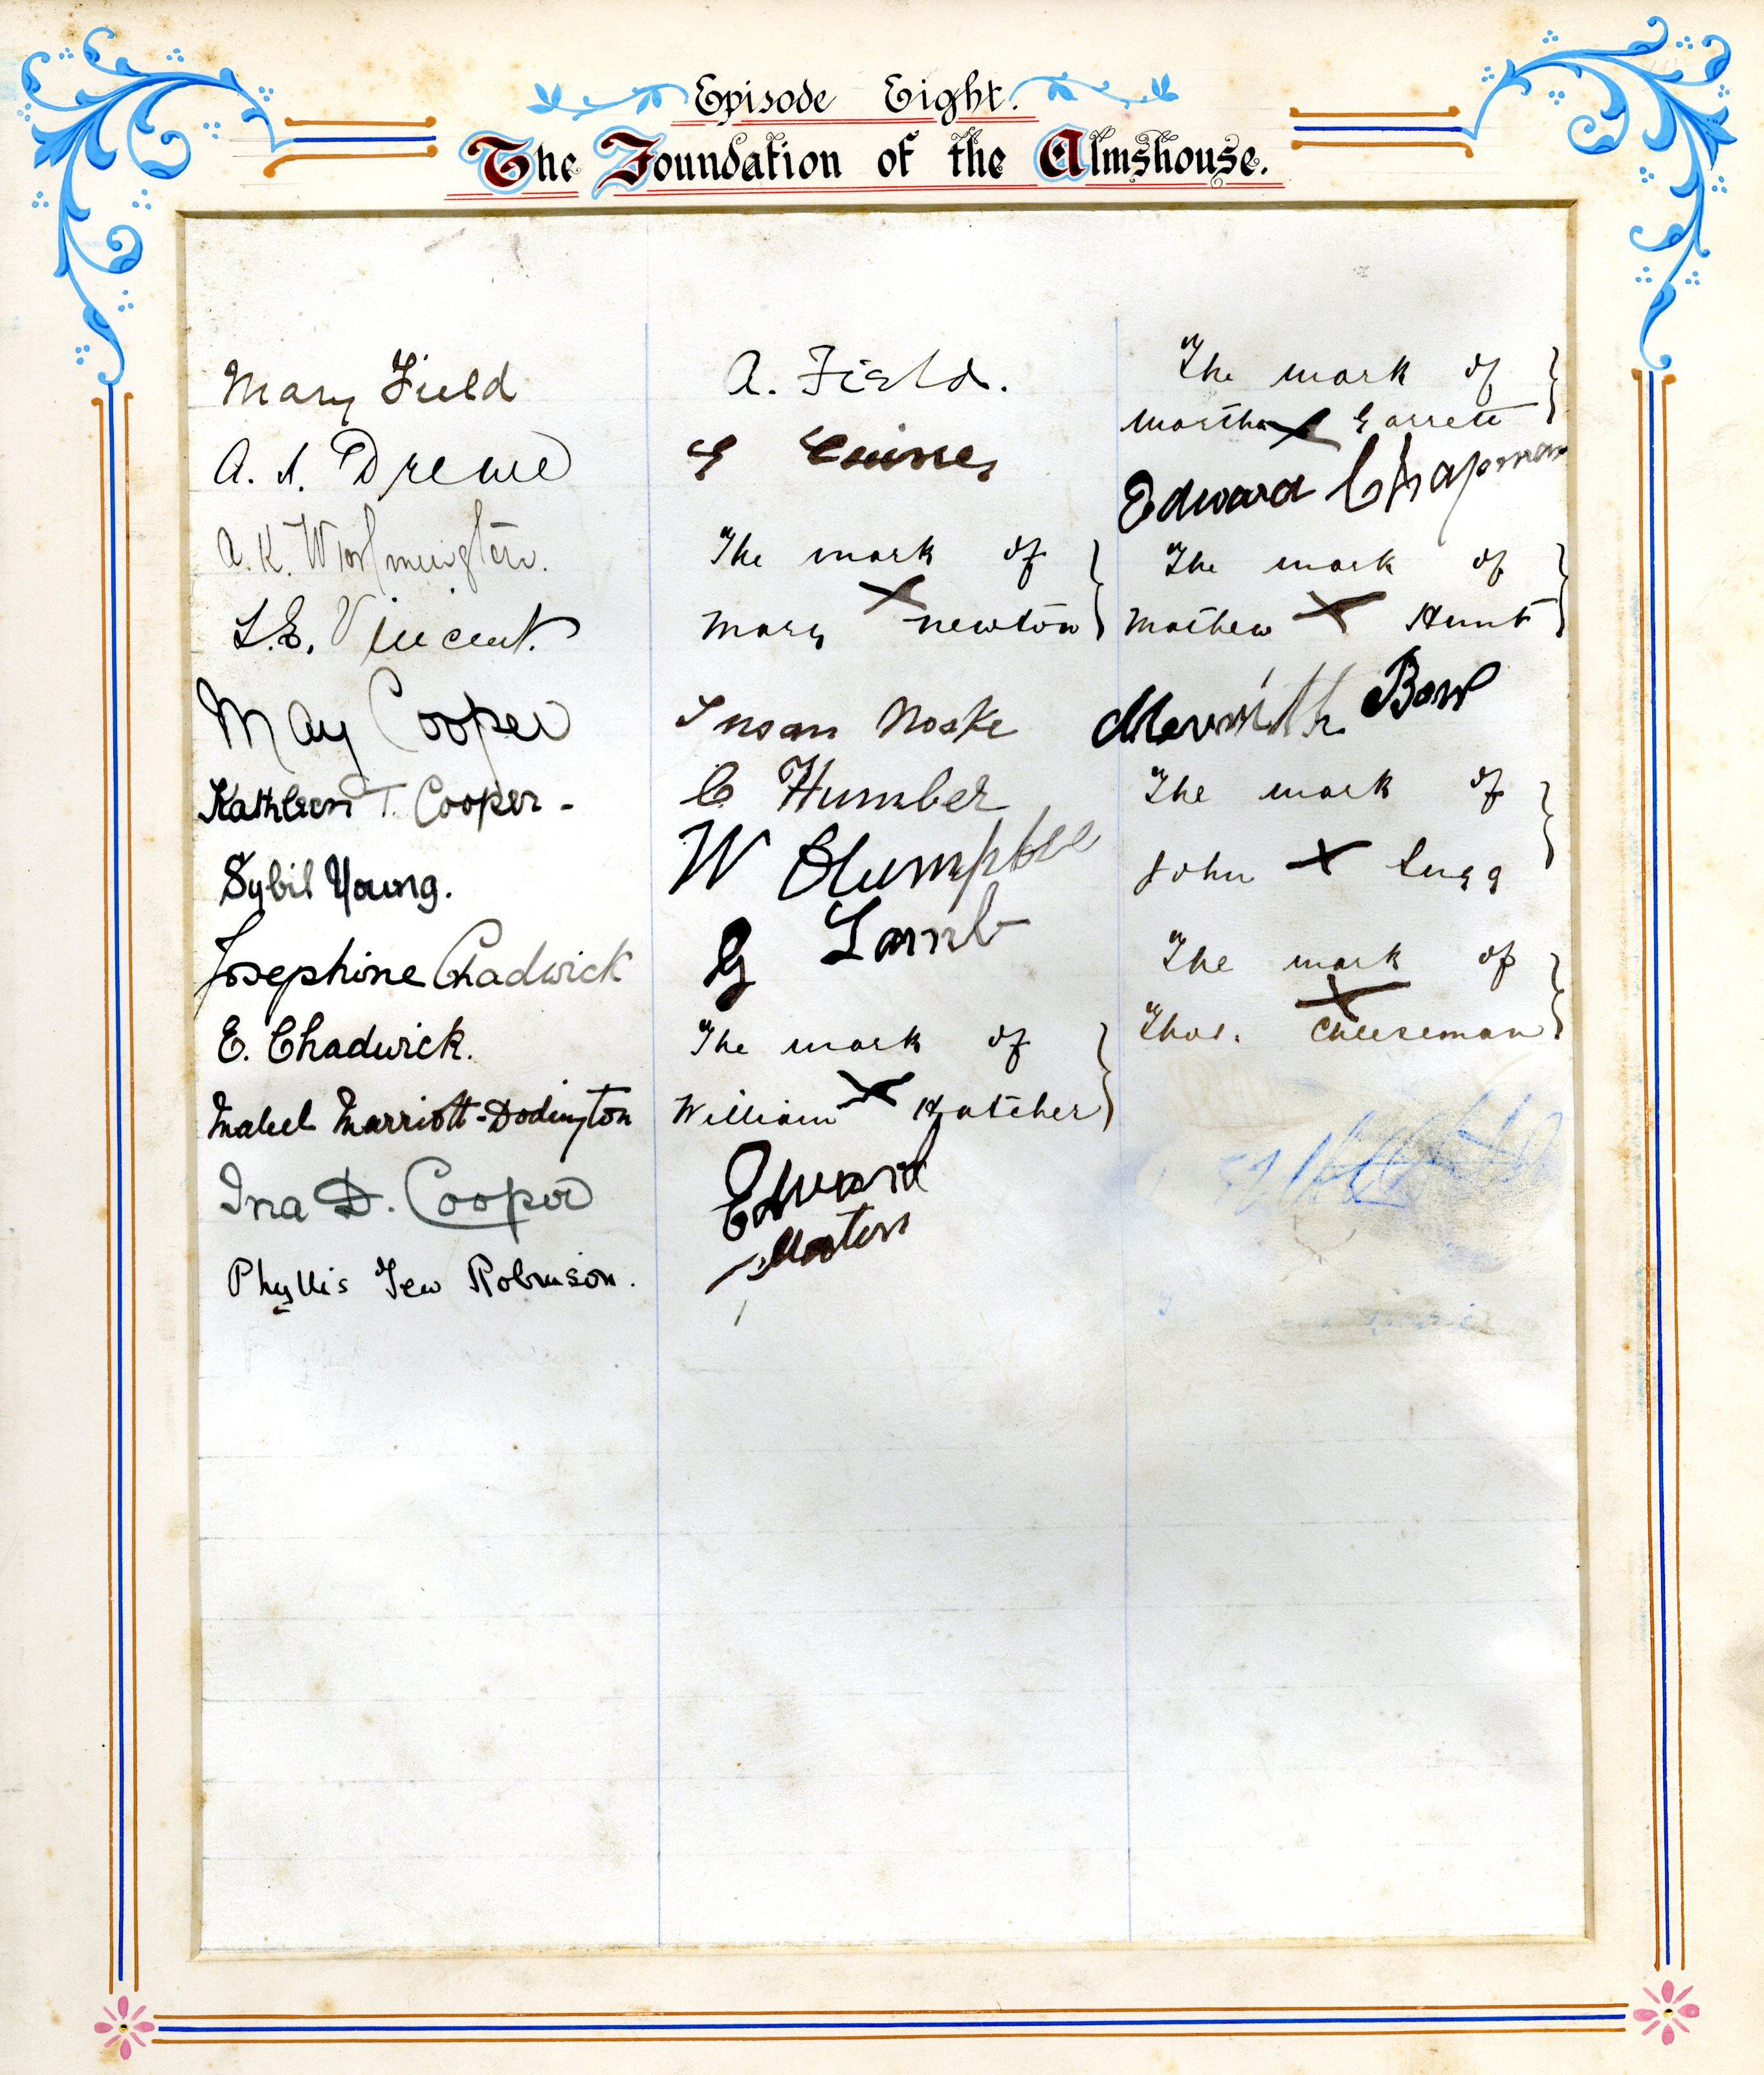 Episode Eight.
The Foundation of the Almshouse.
Mary Field
A. A. Drewe
A. K.
L.E. Vincent.
May Cooper
Kathleen T. Cooper -
Sybil Young.
Josephine Chadwick
E. Chadwick.
Mabel Marriott-Dodington
Ina D. Cooper
Phyllis Tew Robinson.
A. Field.
G
The mark of
Mary X Newton
Susan Noake
C Humber
W Plumptre
G Lamb
The mark of
William X Hatcher
Edward
Martin
The mark of
Martha X Garrett
Edward Chapman
The mark of
Mathew X Hunt
The mark of
John X Sugg
The mark of
X
Thos. Cheeseman